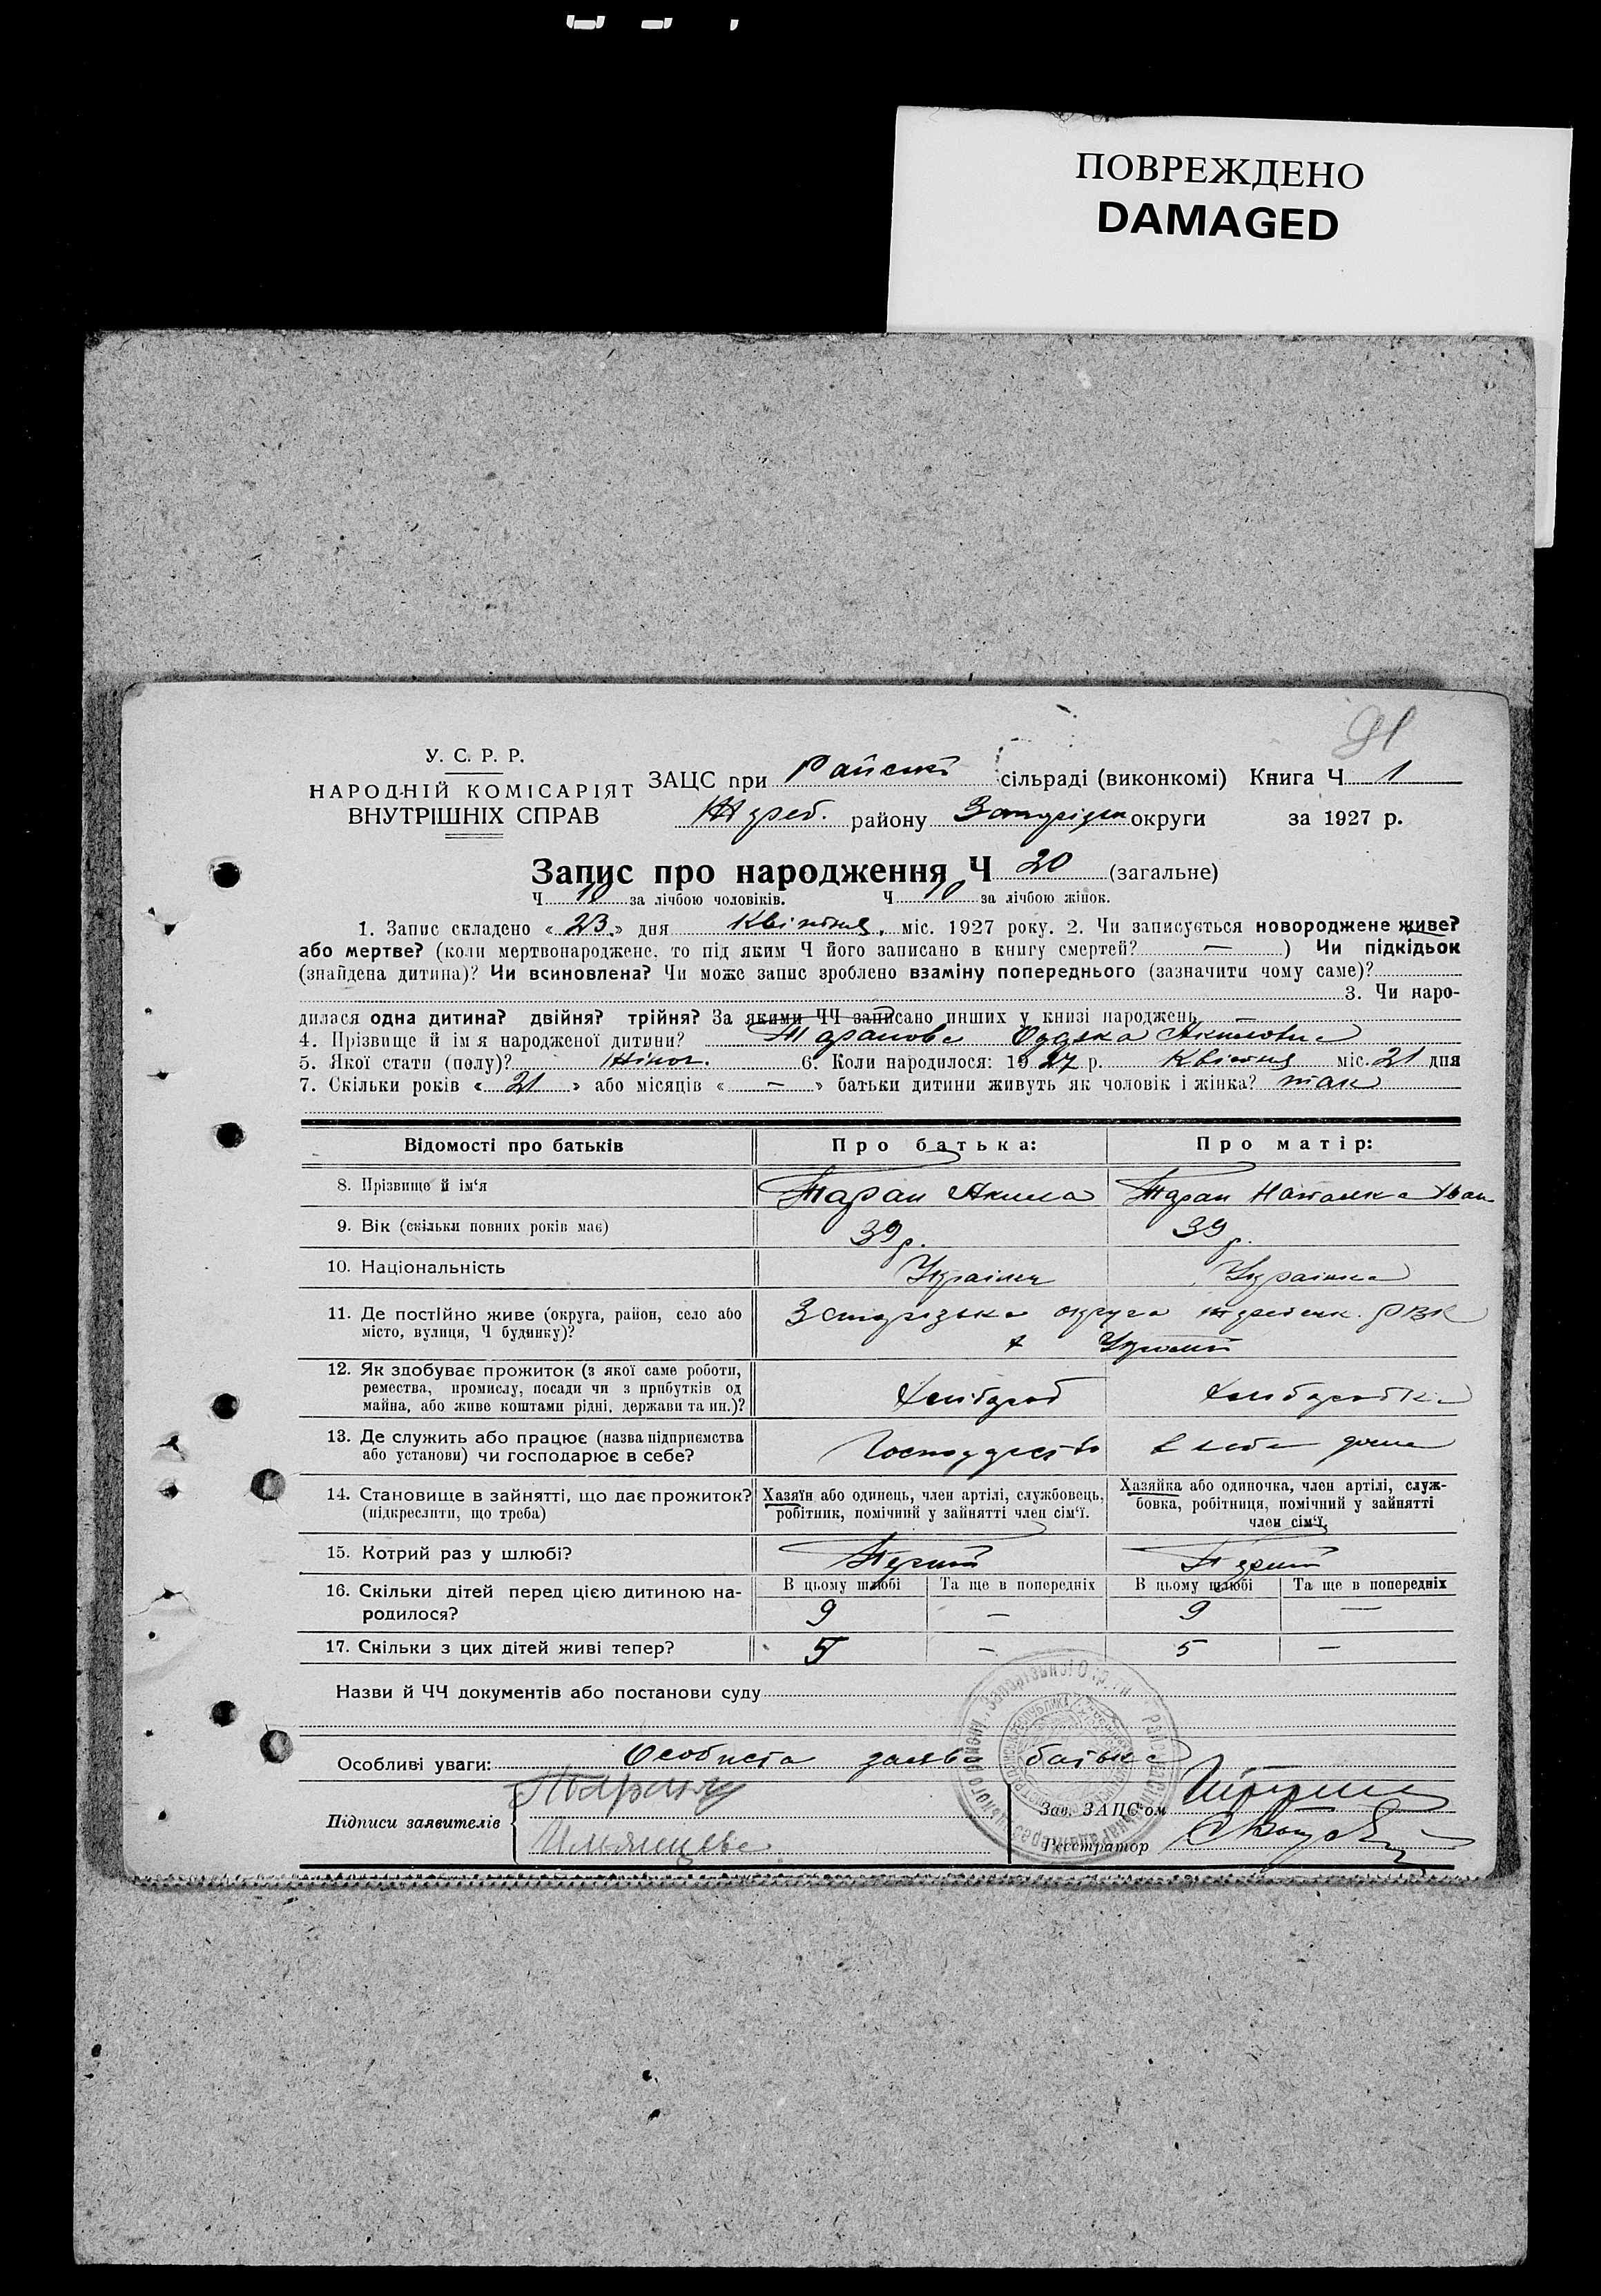 ПОВРЕЖДЕНО
DAMAGED
91
У. С. Р. Р.
НАРОДНІЙ КОМІСАРІЯТ
ВНУТРІШНІХ СПРАВ
ЗАЦС при Райські сільраді (виконкомі) Книга Ч 1
району округи за 1927 р.
Запис про народження Ч 20 (загальне)
Ч 10 за лічбою чоловіків. Ч 10 за лічбою жінок.
1. Запис складено « 23 » дня Квітня, міс. 1927 року. 2. Чи записується новороджене живе?
або мертве? (коли мертвонароджене, то під яким Ч його записано в книгу смертей? — ) Чи підкідьок
(знайдена дитина)? Чи всиновлена? Чи може запис зроблено взаміну попереднього (зазначити чому саме)?
3. Чи наро-
дилася одна дитина? двійня? трійня? За якими ЧЧ записано инших у книзі народжень —
4. Прізвище й ім'я народженої дитини? Таранова
5. Якої стати (полу)? Жіноч. 6. Коли народилося: 1927 р. Квітня міс. 21 дня
7. Скільки років « 21 » або місяців « — » батьки дитини живуть як чоловік і жінка? так
Відомості про батьків Про батька: Про матір:
8. Прізвище й ім'я Таран Акила Таран Наталка Іван
9. Вік (скільки повних років має) 39 р. 39 р.
10. Національність Українец Українка
11. Де постійно живе (округа, район, село або місто, вулиця, Ч будинку)? округа РВК
12. Як здобуває прожиток (з якої саме роботи, ремества, промислу, посади чи з прибутків од майна, або живе коштами рідні, держави та ин.)? Хлібороб Хлиборобка
13. Де служить або працює (назва підприємства або установи) чи господарює в себе? в себе дома
14. Становище в зайнятті, що дає прожиток? (підкреслити, що треба) Хазяїн або одинець, член артілі, службовець, робітник, помічний у зайнятті член сім'ї. Хазяйка або одиночка, член артілі, служ-бовка, робітниця, помічний у зайнятті член сім'ї.
15. Котрий раз у шлюбі? Перший Перший
16. Скільки дітей перед цією дитиною на-родилося? В цьому шлюбі 9 Та ще в попередніх — В цьому шлюбі 9 Та ще в попередніх —
17. Скільки з цих дітей живі тепер? 5 — 5 —
Назви й ЧЧ документів або постанови суду
Особливі уваги: Особиста заява батька
Підписи заявителів
Зав. ЗАЦС'ом
Реєстратор